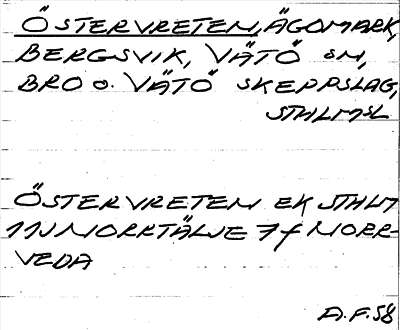 ÖSTERVRETEN, ÄGOMARK,
BERGSVIK, VÄTÖ SN,
BRO O. VÄTÖ SKEPPSLAG,
STHLMSL
ÖSTERVRETEN EK STHLM
11J NORRTÄLJE 7f NORR-
VEDA
A.F.58